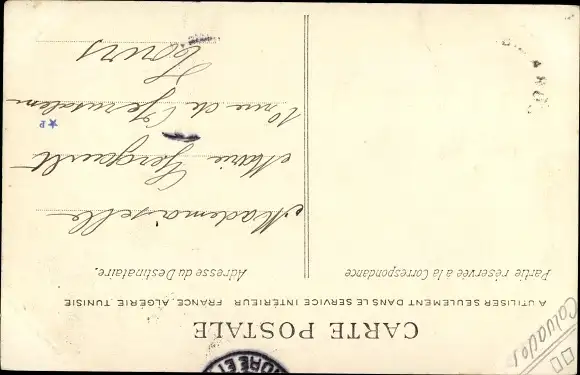 CARTE POSTALE
A UTILISER SEULEMENT DANS LE SERVICE INTÉRIEUR FRANCE, ALGÉRIE, TUNISIE
Partie réservée a la Correspondance
Adresse du Destinataire.
Mademoiselle
Marie
rue de Jérusalem
Tours
Calvados